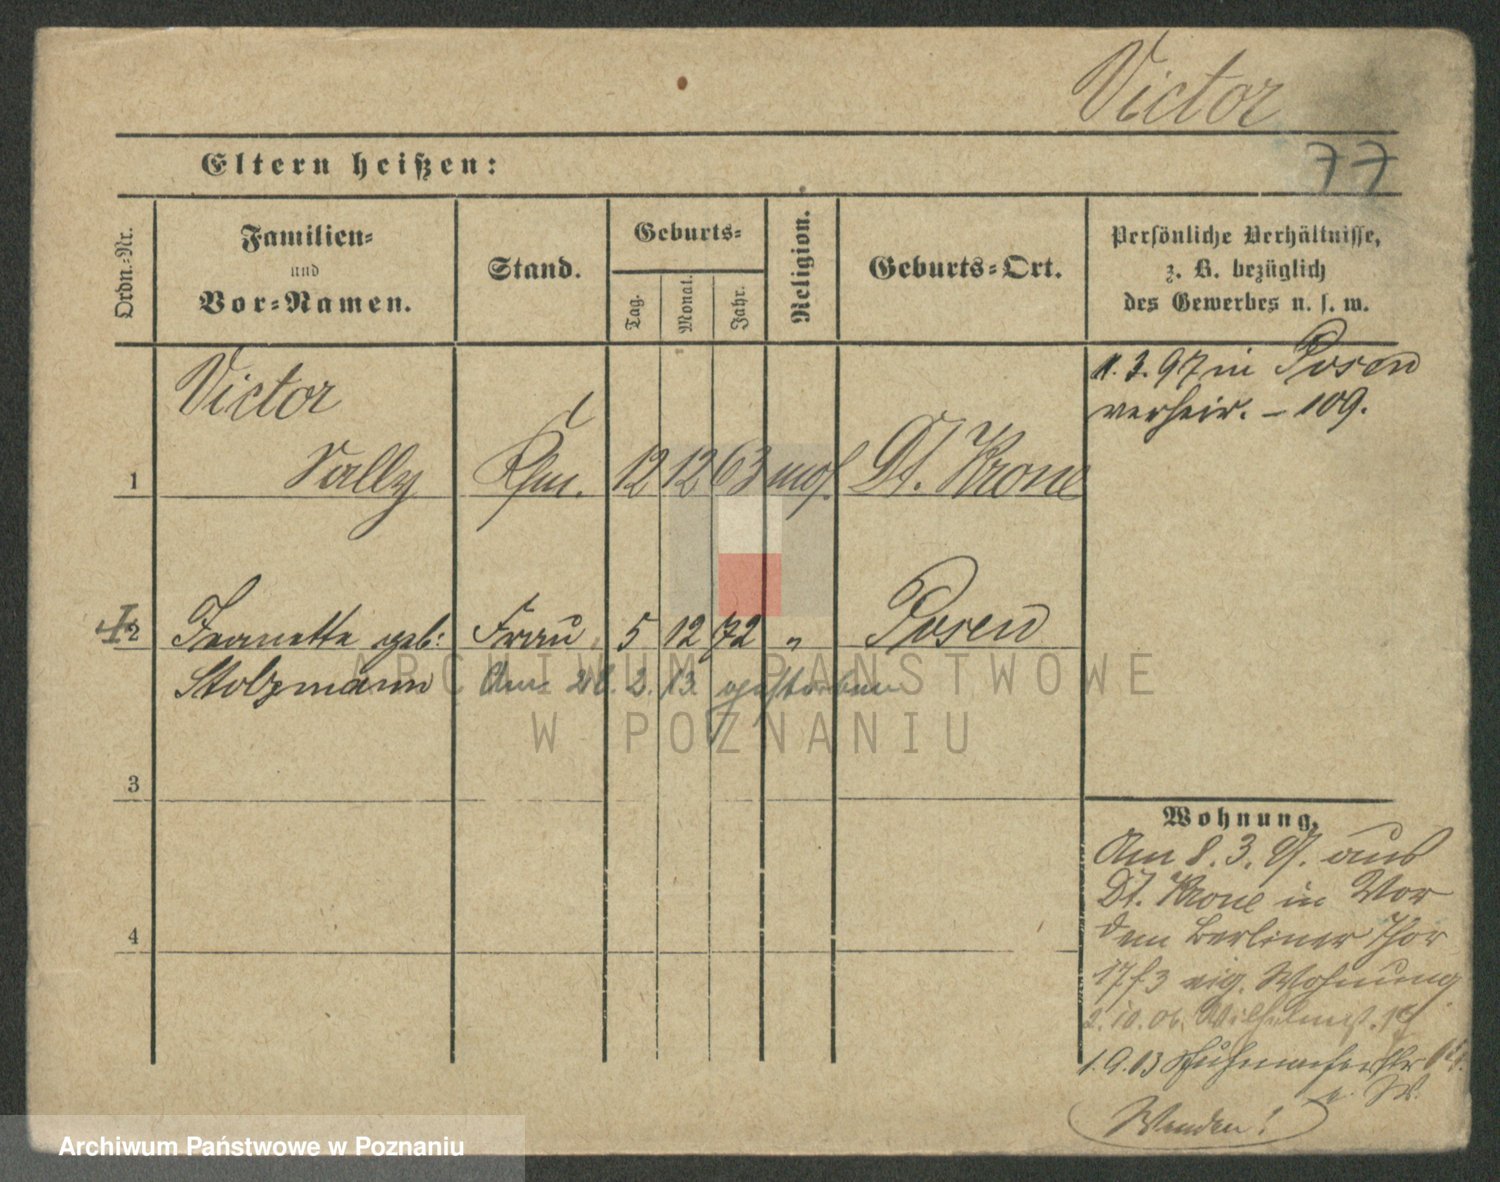 Victor
77
Eltern heißen:
Ordn.-Nr.
Familien-
und
Vor-Namen.
Stand.
Geburts-
Tag.
Monat.
Jahr.
Religion.
Geburts-Ort.
Persönliche Verhältnisse,
z. B. bezüglich
des Gewerbes u. s. w.
1
Victor
Sally
Kfm.
12
12
63
mos.
Dt. Krone
1.3.97 in Posen
verheir. - 109.
2
Jeanette geb:
Stolzmann
Frau
5
12
72
"
Posen
Am 28.2.13. gestorben
3
4
Wohnung.
Am 8.3.97. aus
Dt. Krone in Vor
dem Berliner Thor
17 f3 eig. Wohnung
2.10.06. Wilhelmst.
1.9.13 Schuhmacherstr
e. W.
Wenden!
ARCHIWUM PAŃSTWOWE
W POZNANIU
Archiwum Państwowe w Poznaniu